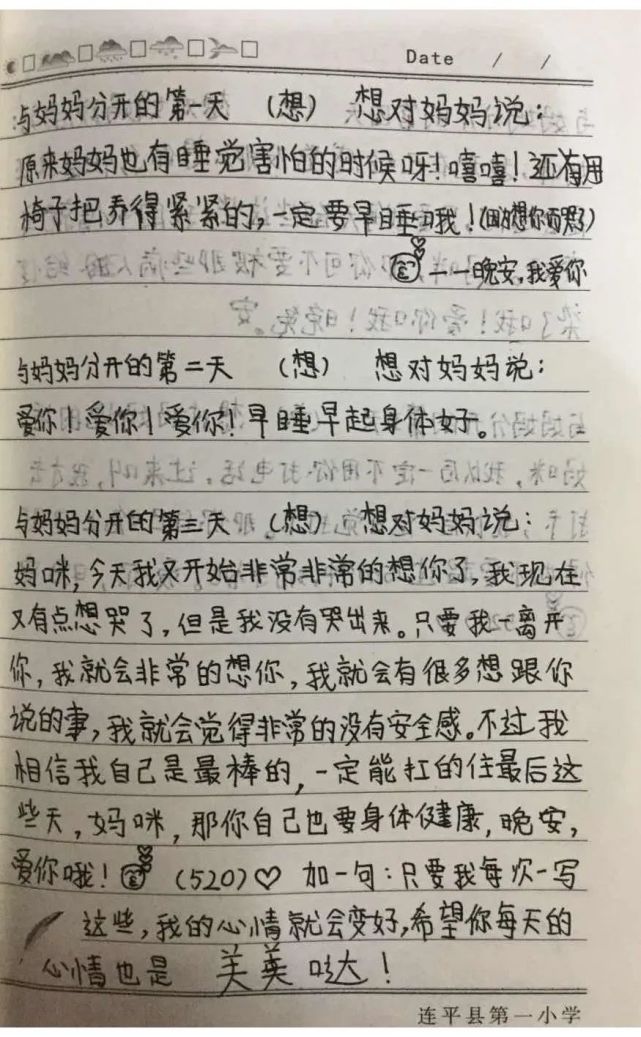 Date / /
与妈妈分开的第一天 (想) 想对妈妈说:
原来妈妈也有睡觉害怕的时候呀!嘻嘻!还有用
椅子把养得紧紧的,一定要早睡哦!(因为想你而哭了)
——晚安,我爱你
与妈妈分开的第二天 (想) 想对妈妈说:
爱你!爱你!爱你!早睡早起身体好。
与妈妈分开的第三天 (想) 想对妈妈说:
妈咪,今天我又开始非常非常的想你了,我现在
又有点想哭了,但是我没有哭出来。只要我一离开
你,我就会非常的想你,我就会有很多想跟你
说的事,我就会觉得非常的没有安全感。不过我
相信我自己是最棒的,一定能扛的住最后这
些天,妈咪,那你自己也要身体健康,晚安,
爱你哦! (520)♡ 加一句:只要我每次一写
这些,我的心情就会变好,希望你每天的
心情也是 美美哒!
连平县第一小学